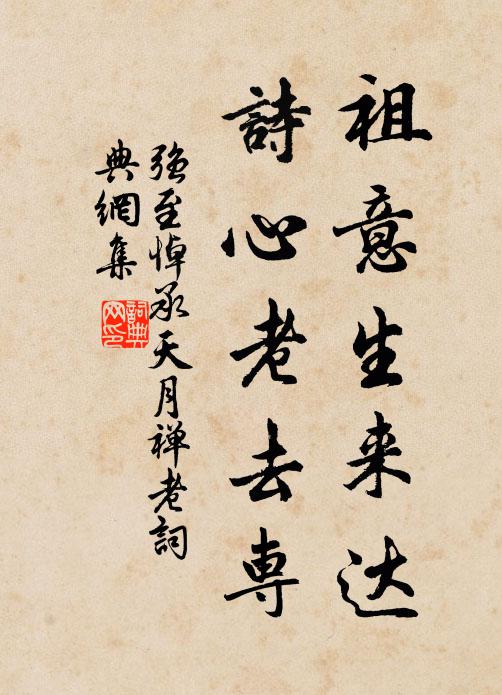 祖意生来达
詩心老去専
強至悼承天月禅老詞
典網集
詞典
网印